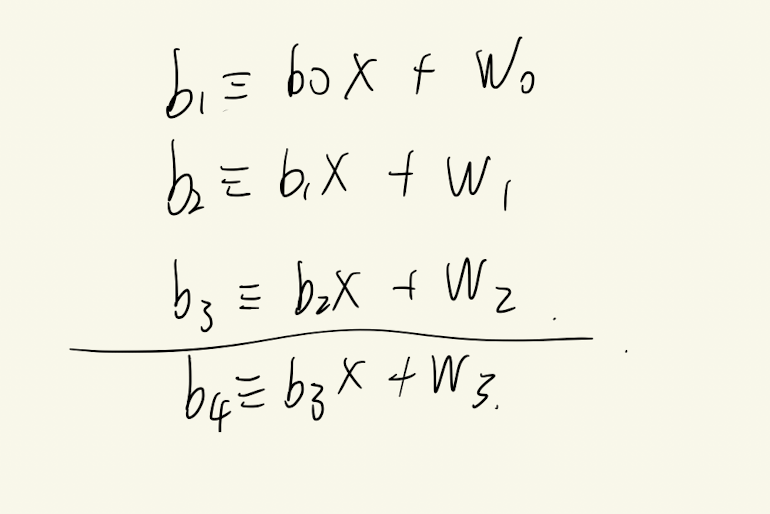 b₁ ≡ b0x + W₀
b₂ ≡ b₁x + W₁
b₃ ≡ b₂x + W₂
b₄ ≡ b₃x + W₃.